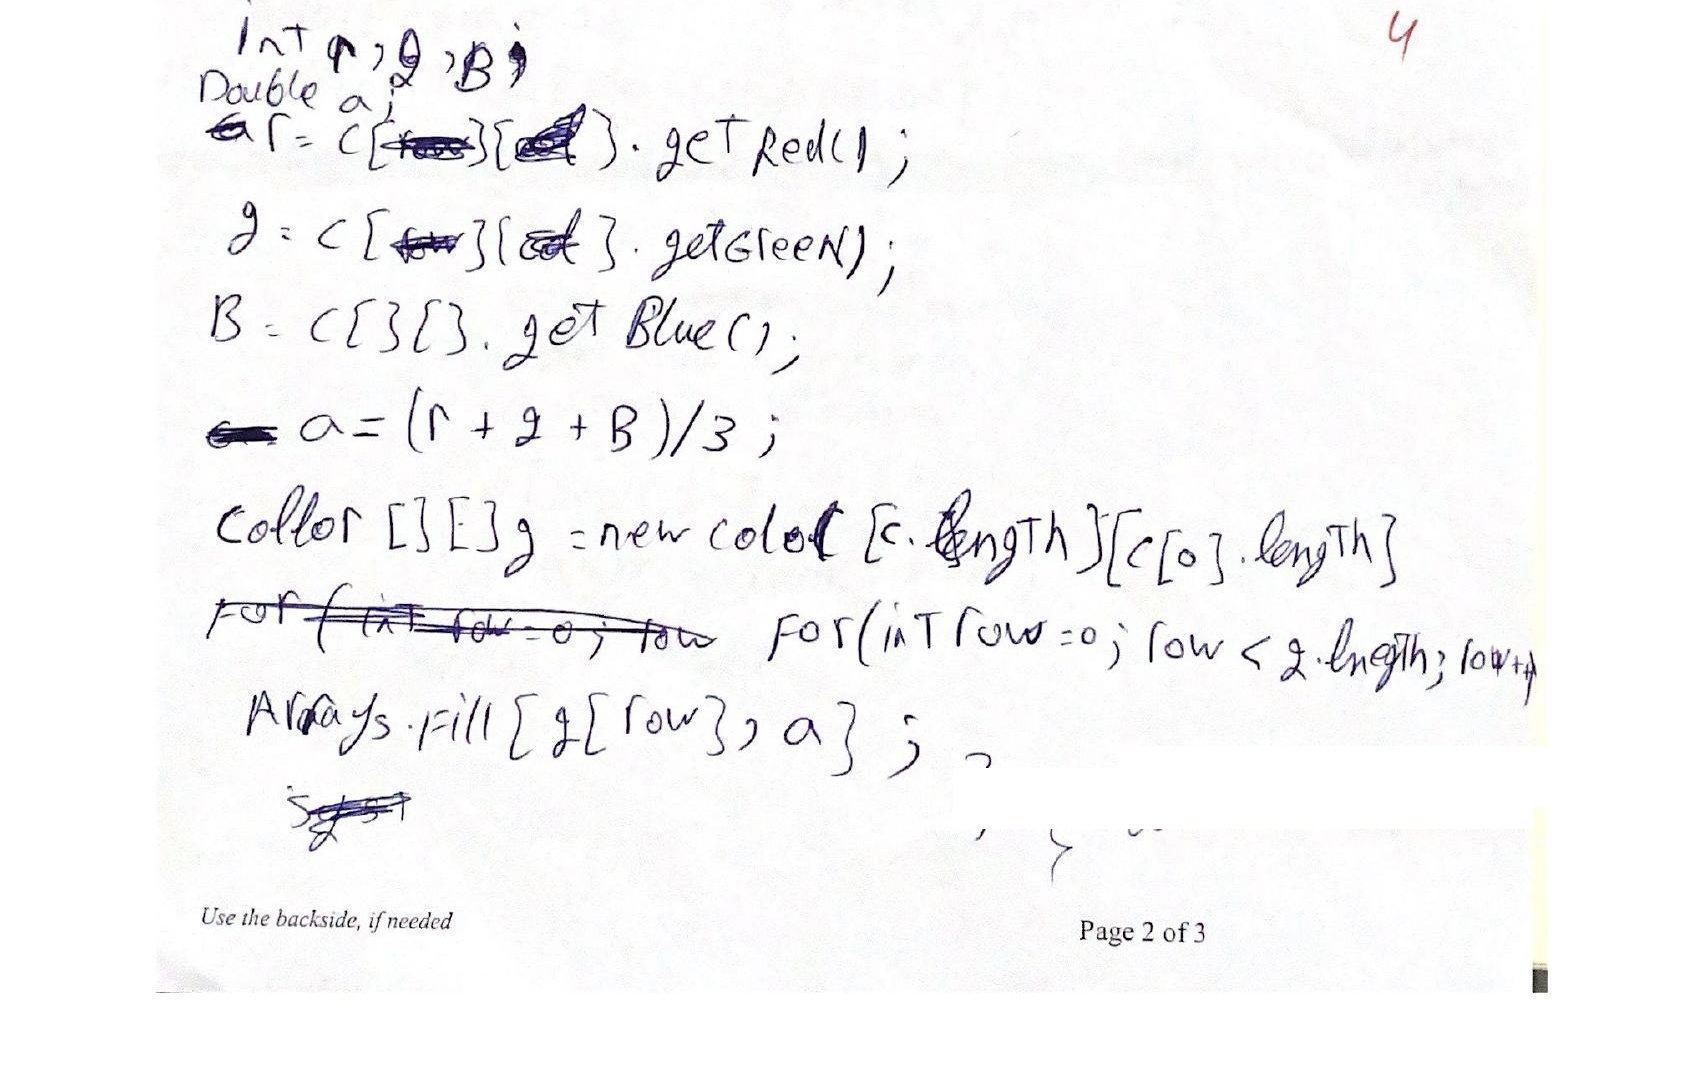 4
int r, g, B;
Double a;
r = c[][].getRed();
g = c[][].getGreeN);
B = c[][].get Blue();
a = (r + g + B)/3;
Collor [][] g = new color [c.length][c[0].length]
For(int row = 0; row < g.lnegth; row++)
Arrays.Fill[g[row], a];
Use the backside, if needed
Page 2 of 3